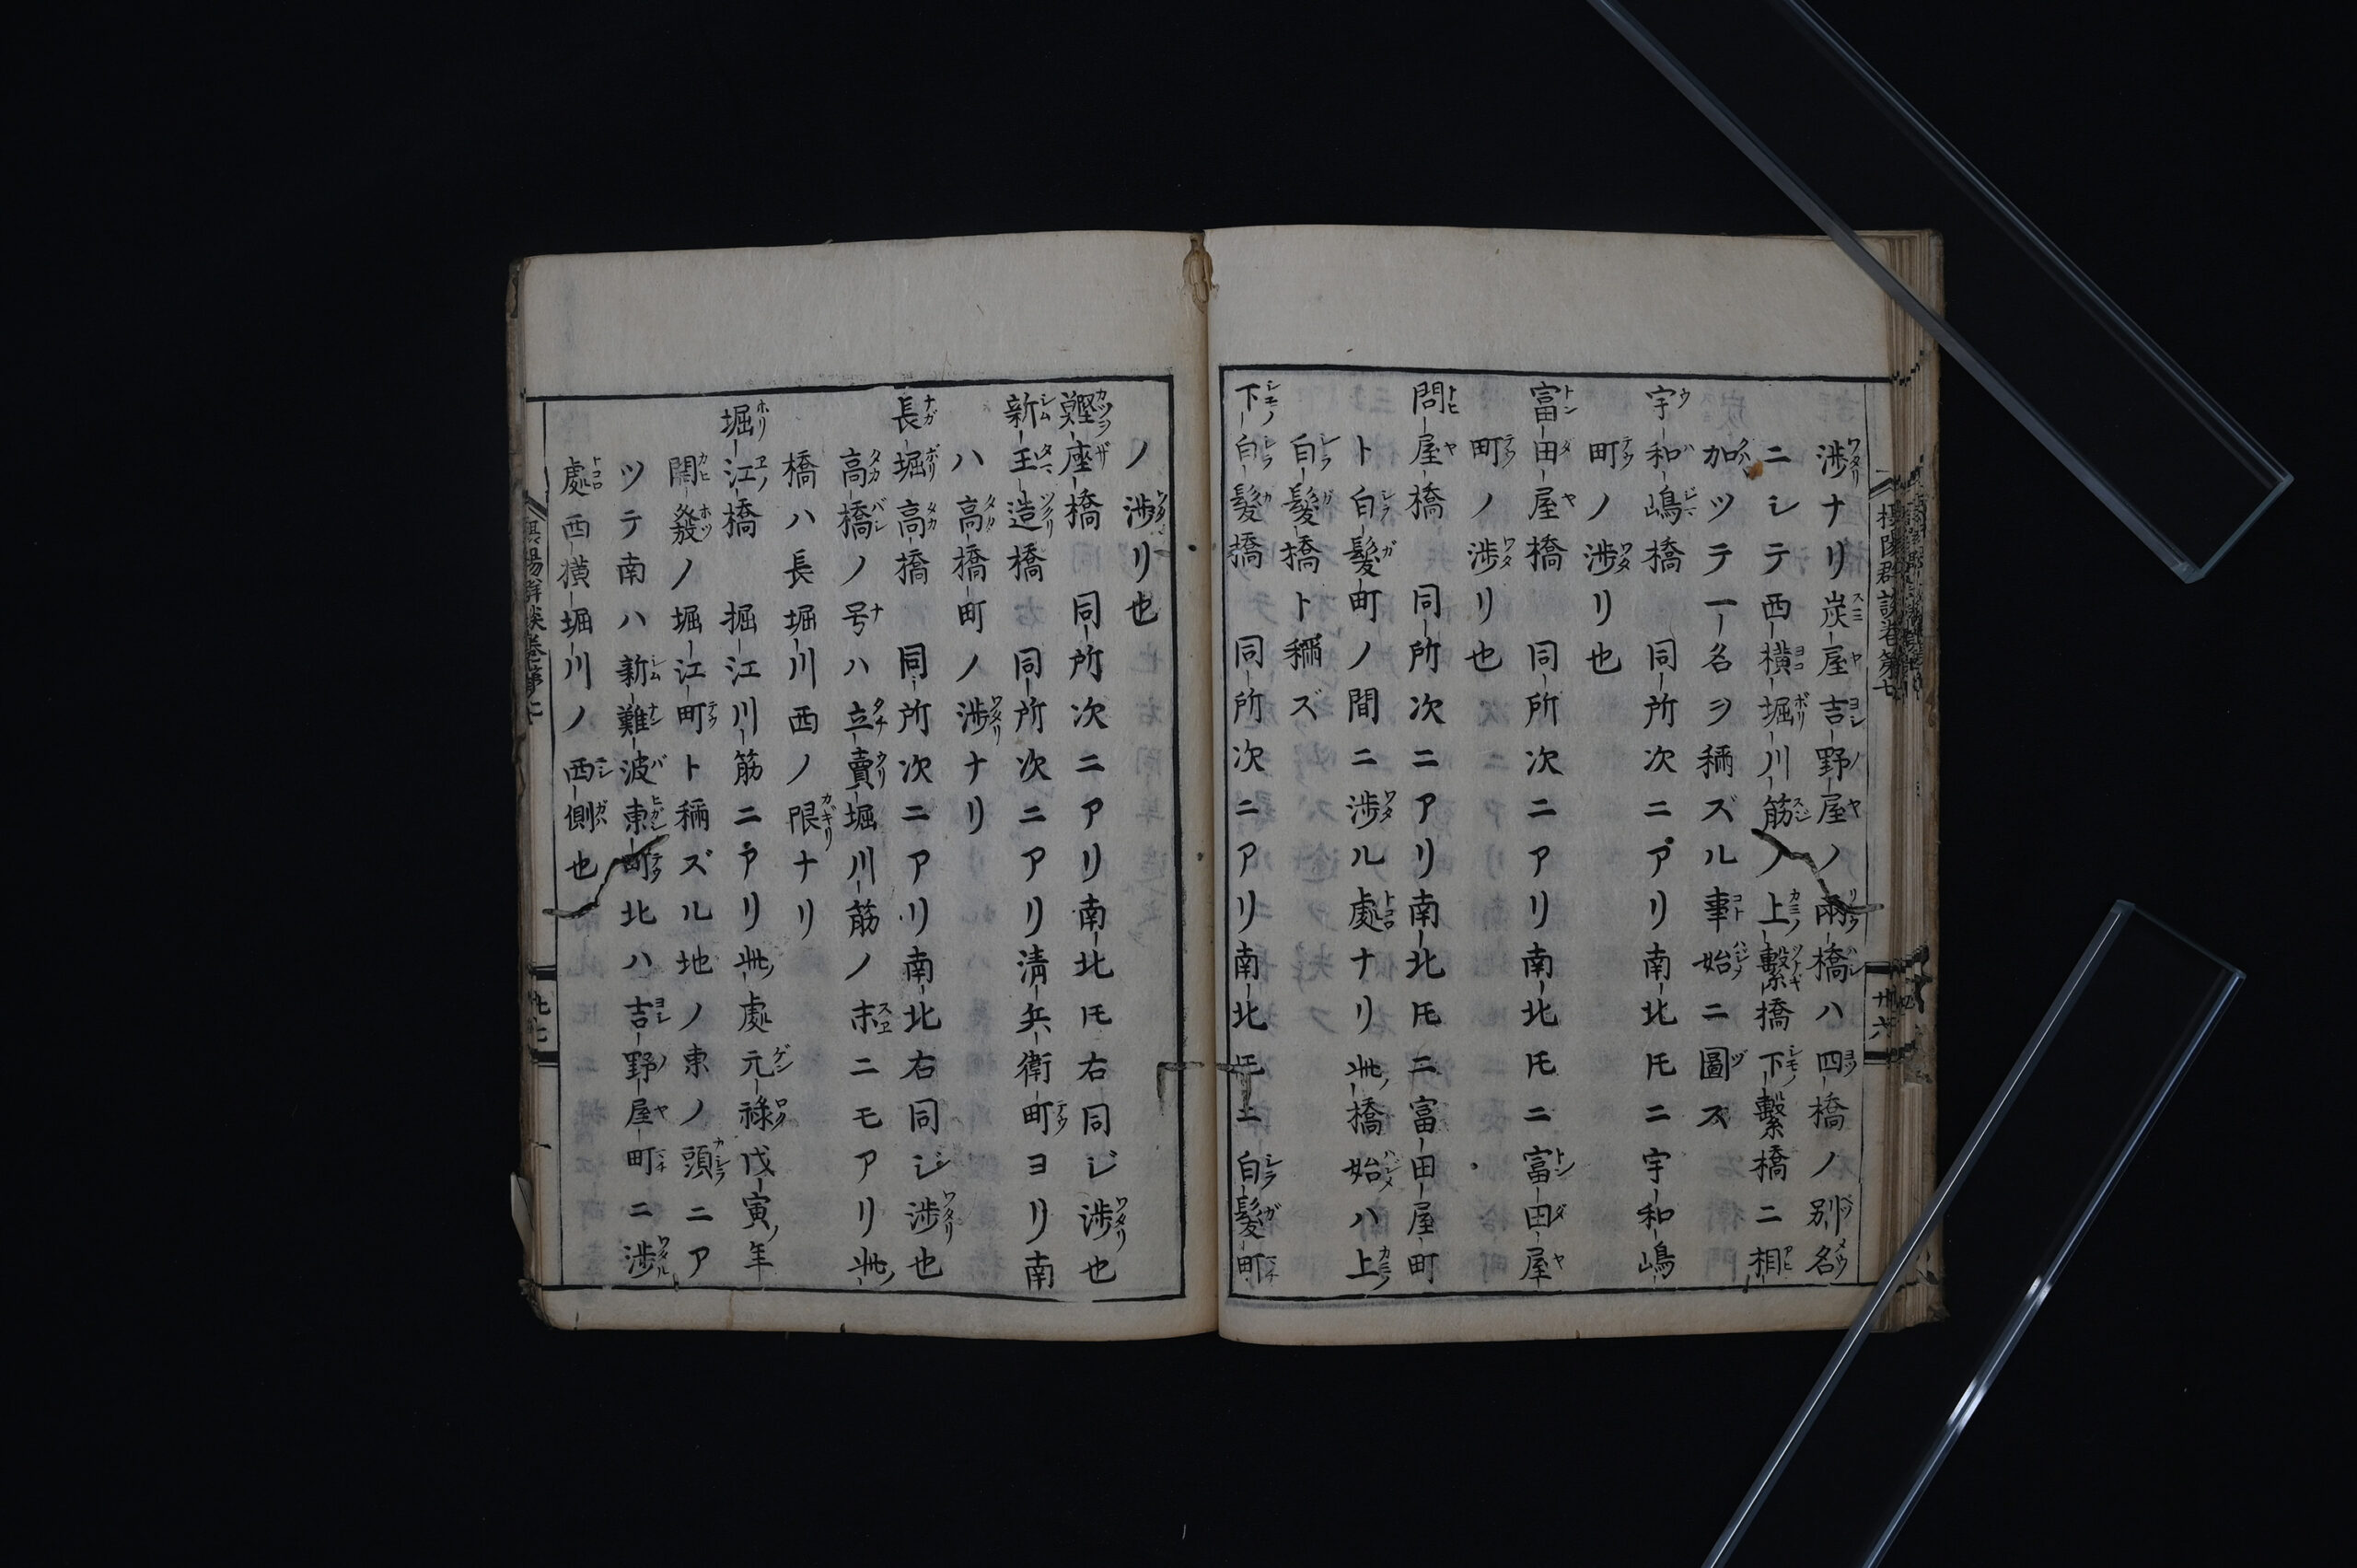 渉ナリ炭屋吉野屋ノ兩橋ハ四橋ノ別名
ニシテ西横堀川筋ノ上繋橋下繋橋ニ相
加ツテ一名ヲ稱ズル事始ニ圖ス
宇和嶋橋 同所次ニアリ南北𪜈ニ宇和嶋
町ノ渉リ也
富田屋橋 同所次ニアリ南北𪜈ニ富田屋
町ノ渉リ也
問屋橋 同所次ニアリ南北𪜈ニ富田屋町
ト白髪町ノ間ニ渉ル處ナリ此橋始ハ上
白髪橋ト稱ズ
下白髪橋 同所次ニアリ南北𪜈ニ白髪町
ノ渉リ也
鰹座橋 同所次ニアリ南北𪜈右同ジ渉也
新玉造橋 同所次ニアリ清兵衛町ヨリ南
ハ高橋町ノ渉ナリ
長堀高橋 同所次ニアリ南北右同ジ渉也
高橋ノ号ハ立賣堀川筋ノ末ニモアリ此
橋ハ長堀川西ノ限ナリ
堀江橋 堀江川筋ニアリ此處元祿戊寅年
開發ノ堀江町ト稱ズル地ノ東ノ頭ニア
ツテ南ハ新難波東町北ハ吉野屋町ニ渉
處西横堀川ノ西側也
摂陽群談巻第七
廿六